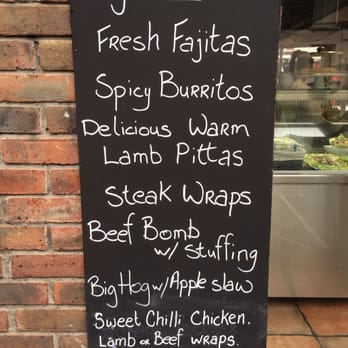 Fresh Fajitas
Spicy Burritos
Delicious Warm
Lamb Pittas
Steak Wraps
Beef Bomb
w/ stuffing
Big Hog w/ Apple slaw
Sweet Chilli Chicken.
Lamb or Beef wraps.